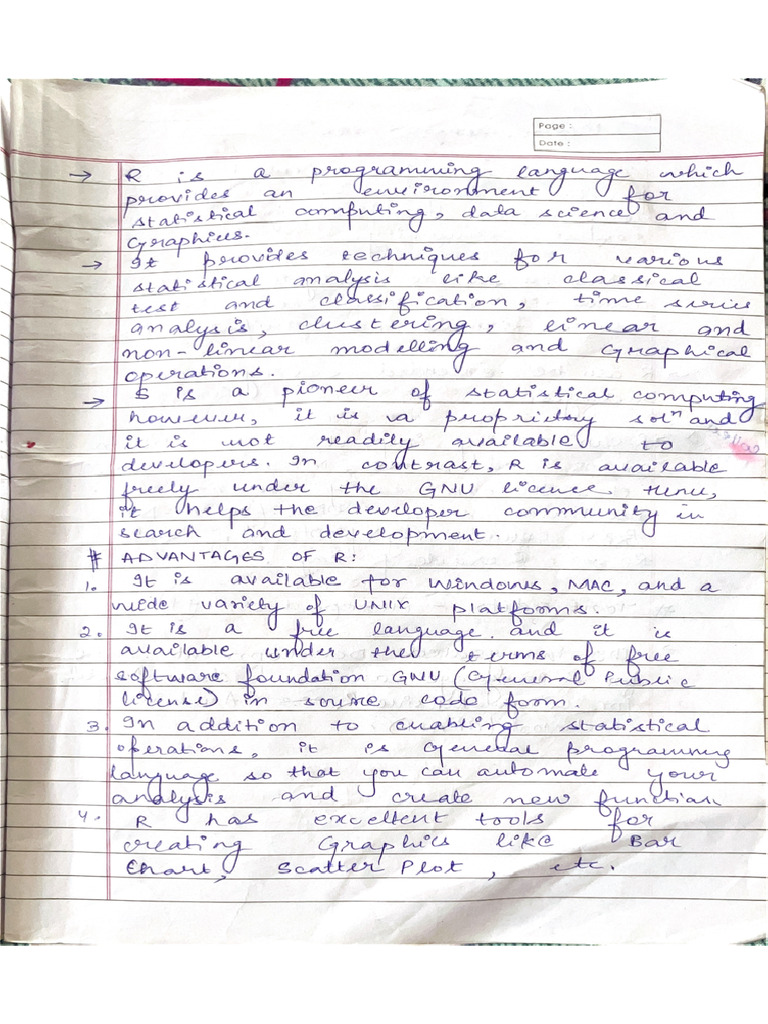 Page :
Date :
→ R is a programming language which
provides an environment for
statistical computing, data science and
Graphics.
→ It provides techniques for various
statistical analysis like classical
test and classification, time series
analysis, clustering, linear and
non-linear modelling and Graphical
operations.
→ S is a pioneer of statistical computing
however, it is a proprietry solⁿ and
it is not readily available to
developers. In contrast, R is available
freely under the GNU licence. Hence,
it helps the developer community in
search and development.
# ADVANTAGES OF R:
1. It is available for Windows, MAC, and a
wide variety of UNIX platforms.
2. It is a free language. and it is
available under the terms of free
software foundation GNU (General Public
license) in source code form.
3. In addition to enabling statistical
operations, it is General programming
language so that you can automate your
analysis and create new function
4. R has excellent tools for
creating Graphics like Bar
Chart, Scatter Plot, etc.